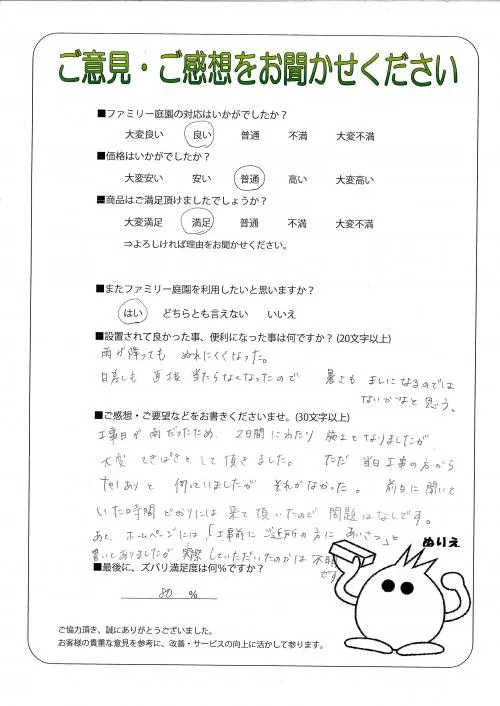 ご意見・ご感想をお聞かせください
■ファミリー庭園の対応はいかがでしたか？
大変良い 良い 普通 不満 大変不満
■価格はいかがでしたか？
大変安い 安い 普通 高い 大変高い
■商品はご満足頂けましたでしょうか？
大変満足 満足 普通 不満 大変不満
⇒よろしければ理由をお聞かせください。
■またファミリー庭園を利用したいと思いますか？
はい どちらとも言えない いいえ
■設置されて良かった事、便利になった事は何ですか？(20文字以上)
雨が降っても ぬれにくくなった。
日差しも 直接 当たらなくなったので 暑さも ましになるのでは
ないかなと 思う。
■ご感想・ご要望などをお書きくださいませ。(30文字以上)
工事日が 雨だったため 2日間にわたり 施工となりましたが
大変 てきぱきとして頂きました。 ただ 当日工事の方から
telありと 伺っていましたが それがなかった。 前日に聞いて
いた時間どおりには 来て頂いたので 問題はなしです。
あと、ホームページには、「工事前に ご近所の方に あいさつ」と
書いてありましたが 実際していただいたのかは 不明
です
■最後に、ズバリ満足度は何%ですか？
80 %
ぬりえ
ご協力頂き、誠にありがとうございました。
お客様の貴重な意見を参考に、改善・サービスの向上に活かして参ります。